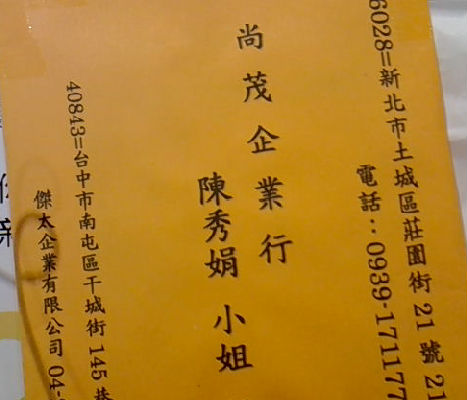 6028=新北市土城區莊園街 21 號 21
電話：0939-171177
尚茂企業行
陳秀娟 小姐
40843=台中市南屯區干城街 145 巷
傑太企業有限公司 04-